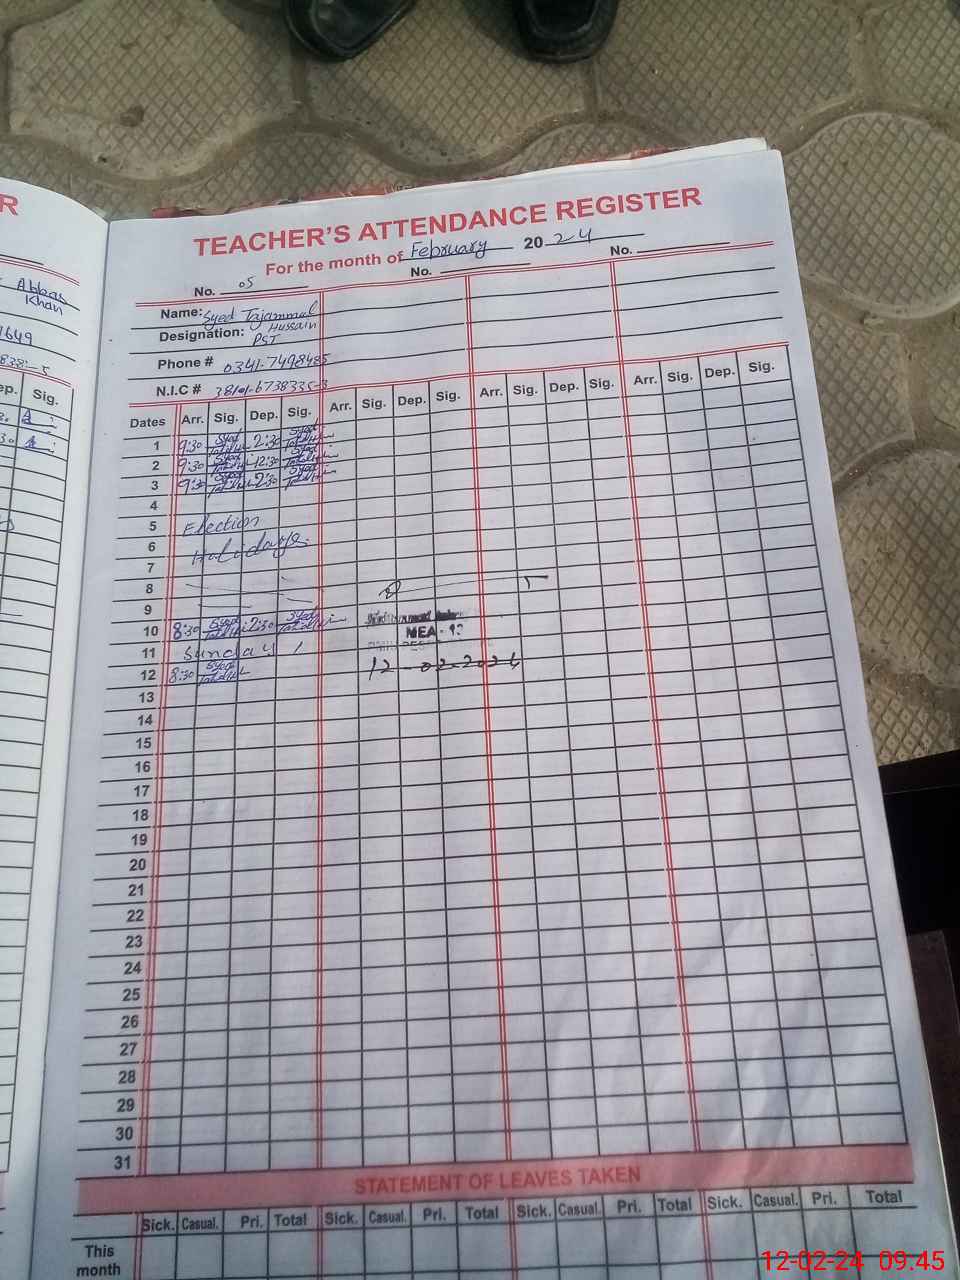 R
TEACHER'S ATTENDANCE REGISTER
For the month of February 2024
No. 05 No. No.
Name: Syed Tajammul
Hussain
Designation: PST
Phone # 0341-7498485
N.I.C #
Dates Arr. Sig. Dep. Sig. Arr. Sig. Dep. Sig. Arr. Sig. Dep. Sig. Arr. Sig. Dep. Sig.
1 9:30 Syed 2:30 Syed
2 9:30 Syed 12:30 Syed
3 9:30 Syed 2:30 Syed
4
5 Election
6 Holidays
7
8
9
10 8:30 Syed 2:30 Syed
MEA
11 Sunday
12 8:30 Syed 12-02-2024
13
14
15
16
17
18
19
20
21
22
23
24
25
26
27
28
29
30
31
STATEMENT OF LEAVES TAKEN
Sick. Casual. Pri. Total Sick. Casual. Pri. Total Sick. Casual. Pri. Total Sick. Casual. Pri. Total
This
month
Abbas
Khan
1649
ep. Sig.
12-02-24 09.45